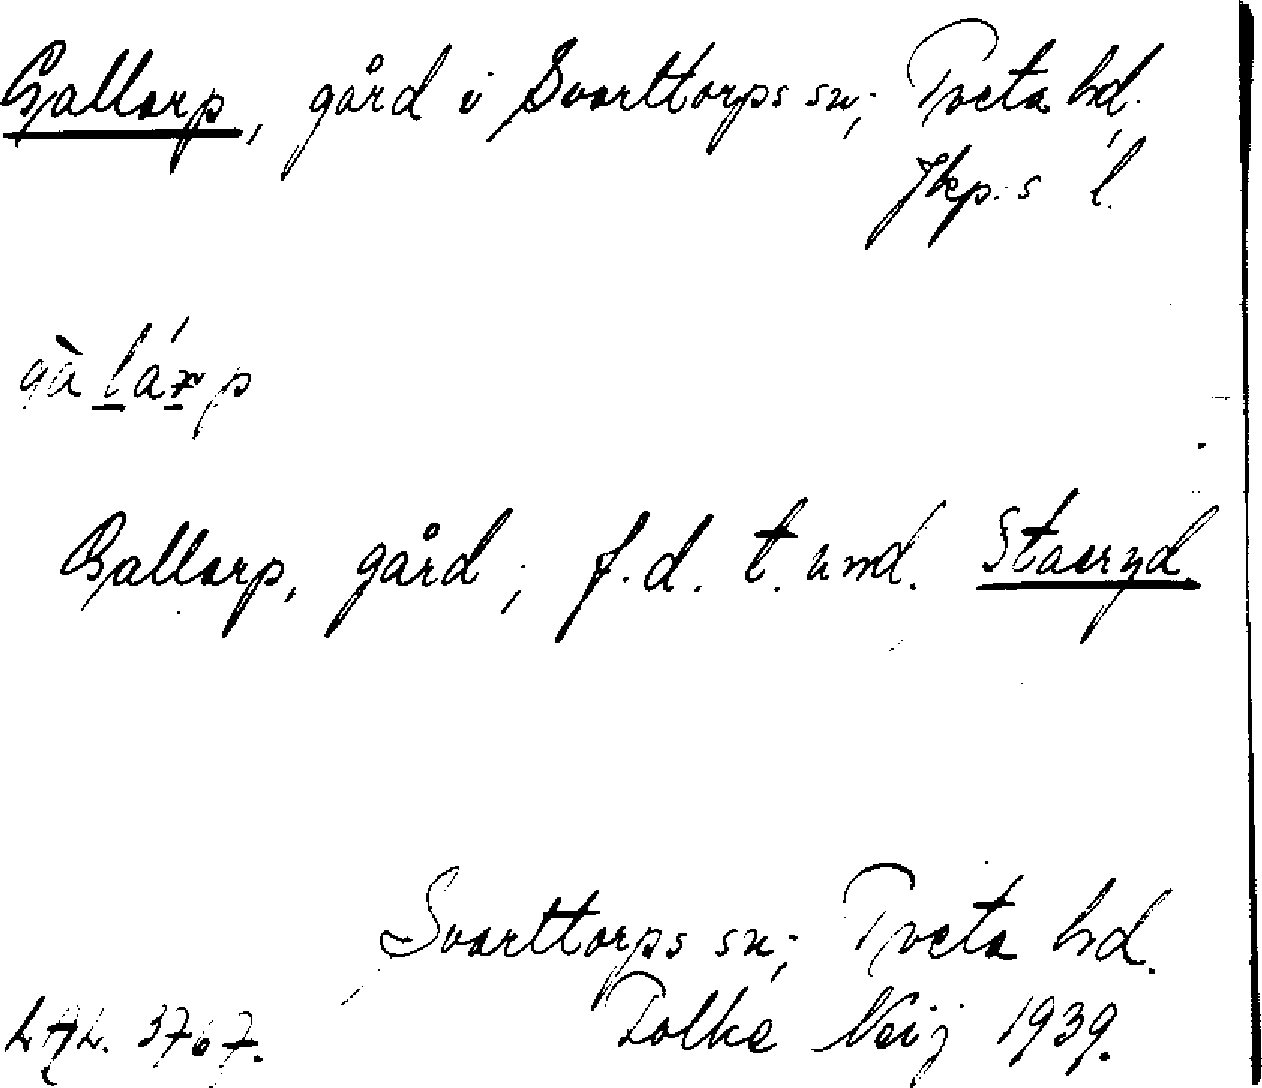 Gallarp, gård i Svarttorps sn; Tveta hd,
Jkp:s l.
gàlárp
Gallarp, gård; f.d. t. und. Stavryd.
Svarttorps sn; Tveta hd.
LAL. 3767. Folke Neij 1939.